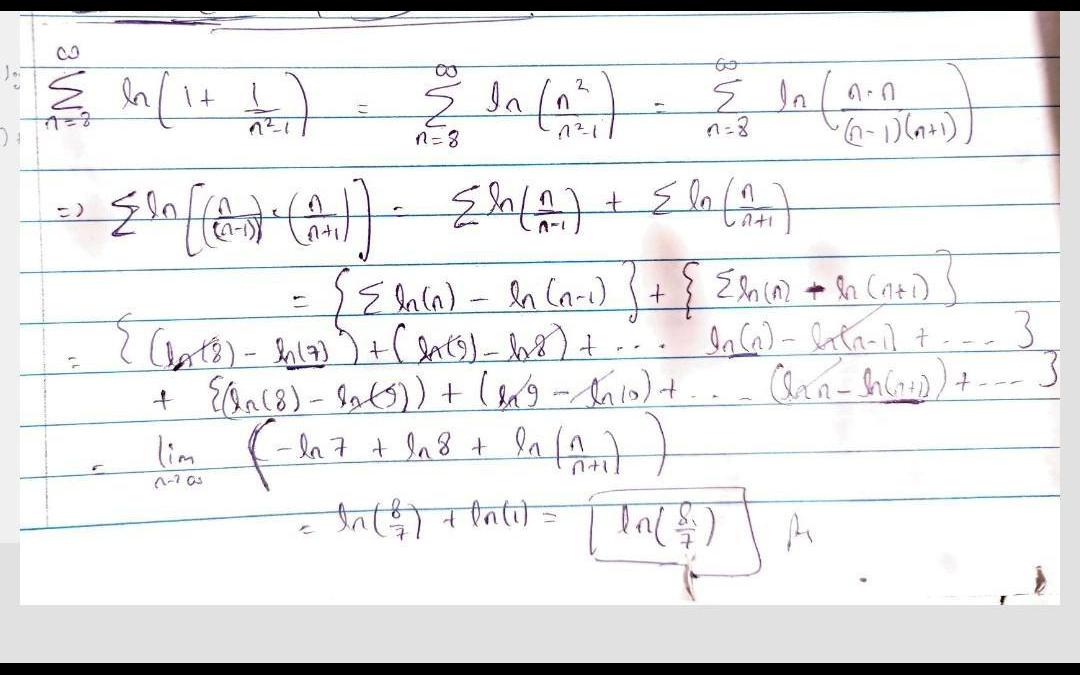 ∞ ∑ n=8 ln(1 + 1/(n²-1)) = ∞ ∑ n=8 ln(n²/(n²-1)) = ∞ ∑ n=8 ln(n·n/((n-1)(n+1)))
=> ∑ ln[(n/(n-1))·(n/(n+1))] = ∑ ln(n/(n-1)) + ∑ ln(n/(n+1))
= {∑ ln(n) - ln(n-1)} + {∑ ln(n) - ln(n+1)}
= {(ln(8) - ln(7)) + (ln(9) - ln8) + ... ln(n) - ln(n-1) + ....}
+ {(ln(8) - ln(9)) + (ln9 - ln10) + ... (ln n - ln(n+1)) + ---}
= lim n→∞ (-ln7 + ln8 + ln(n/(n+1)))
= ln(8/7) + ln(1) = ln(8/7)